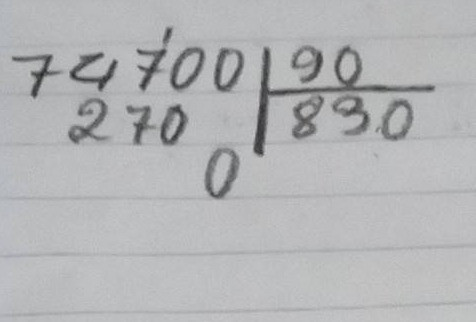 74700 90
270 830
0